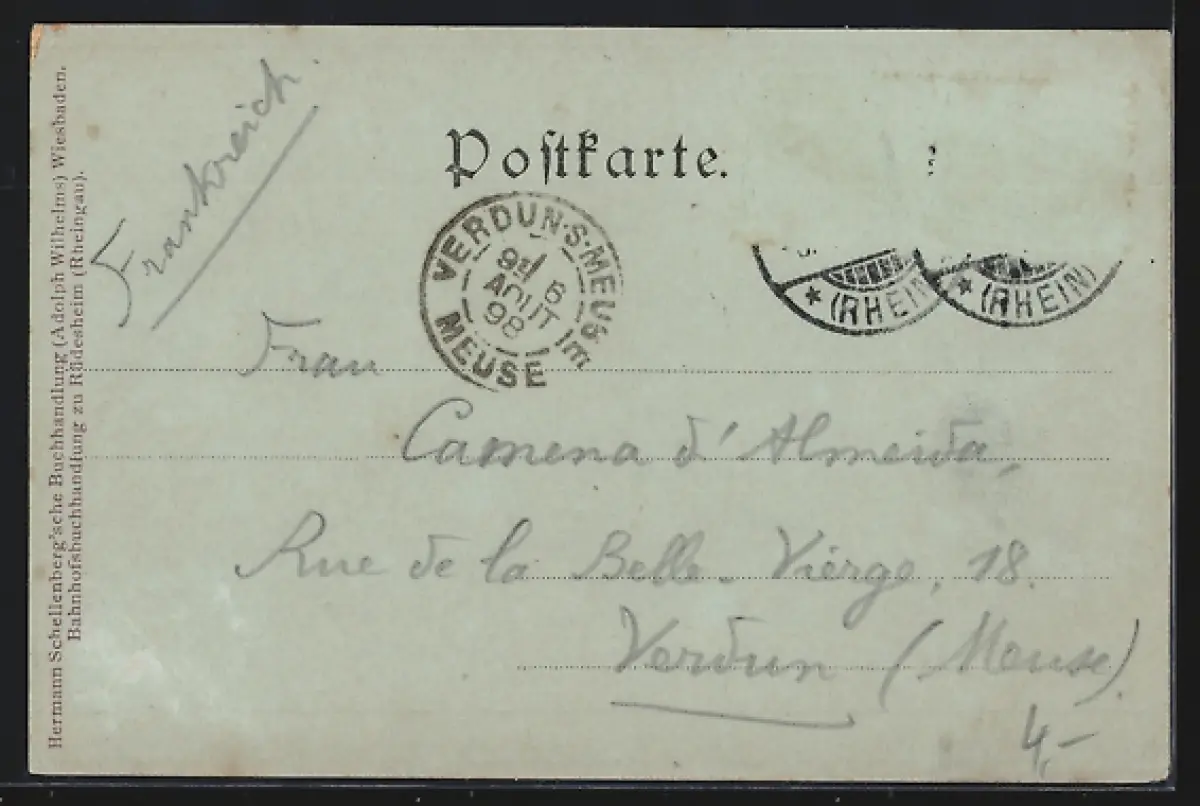 Hermann Schellenberg'sche Buchhandlung (Adolph Wilhelms) Wiesbaden.
Bahnhofsbuchhandlung zu Rüdesheim (Rheingau).
Frankreich.
Postkarte.
VERDUN-S-MEUSE
6
AOUT
98
MEUSE
* (RHEIN)
* (RHEIN)
Frau
Camena d'Almeida,
Rue de la Belle-Vierge, 18.
Verdun (Meuse)
4,-